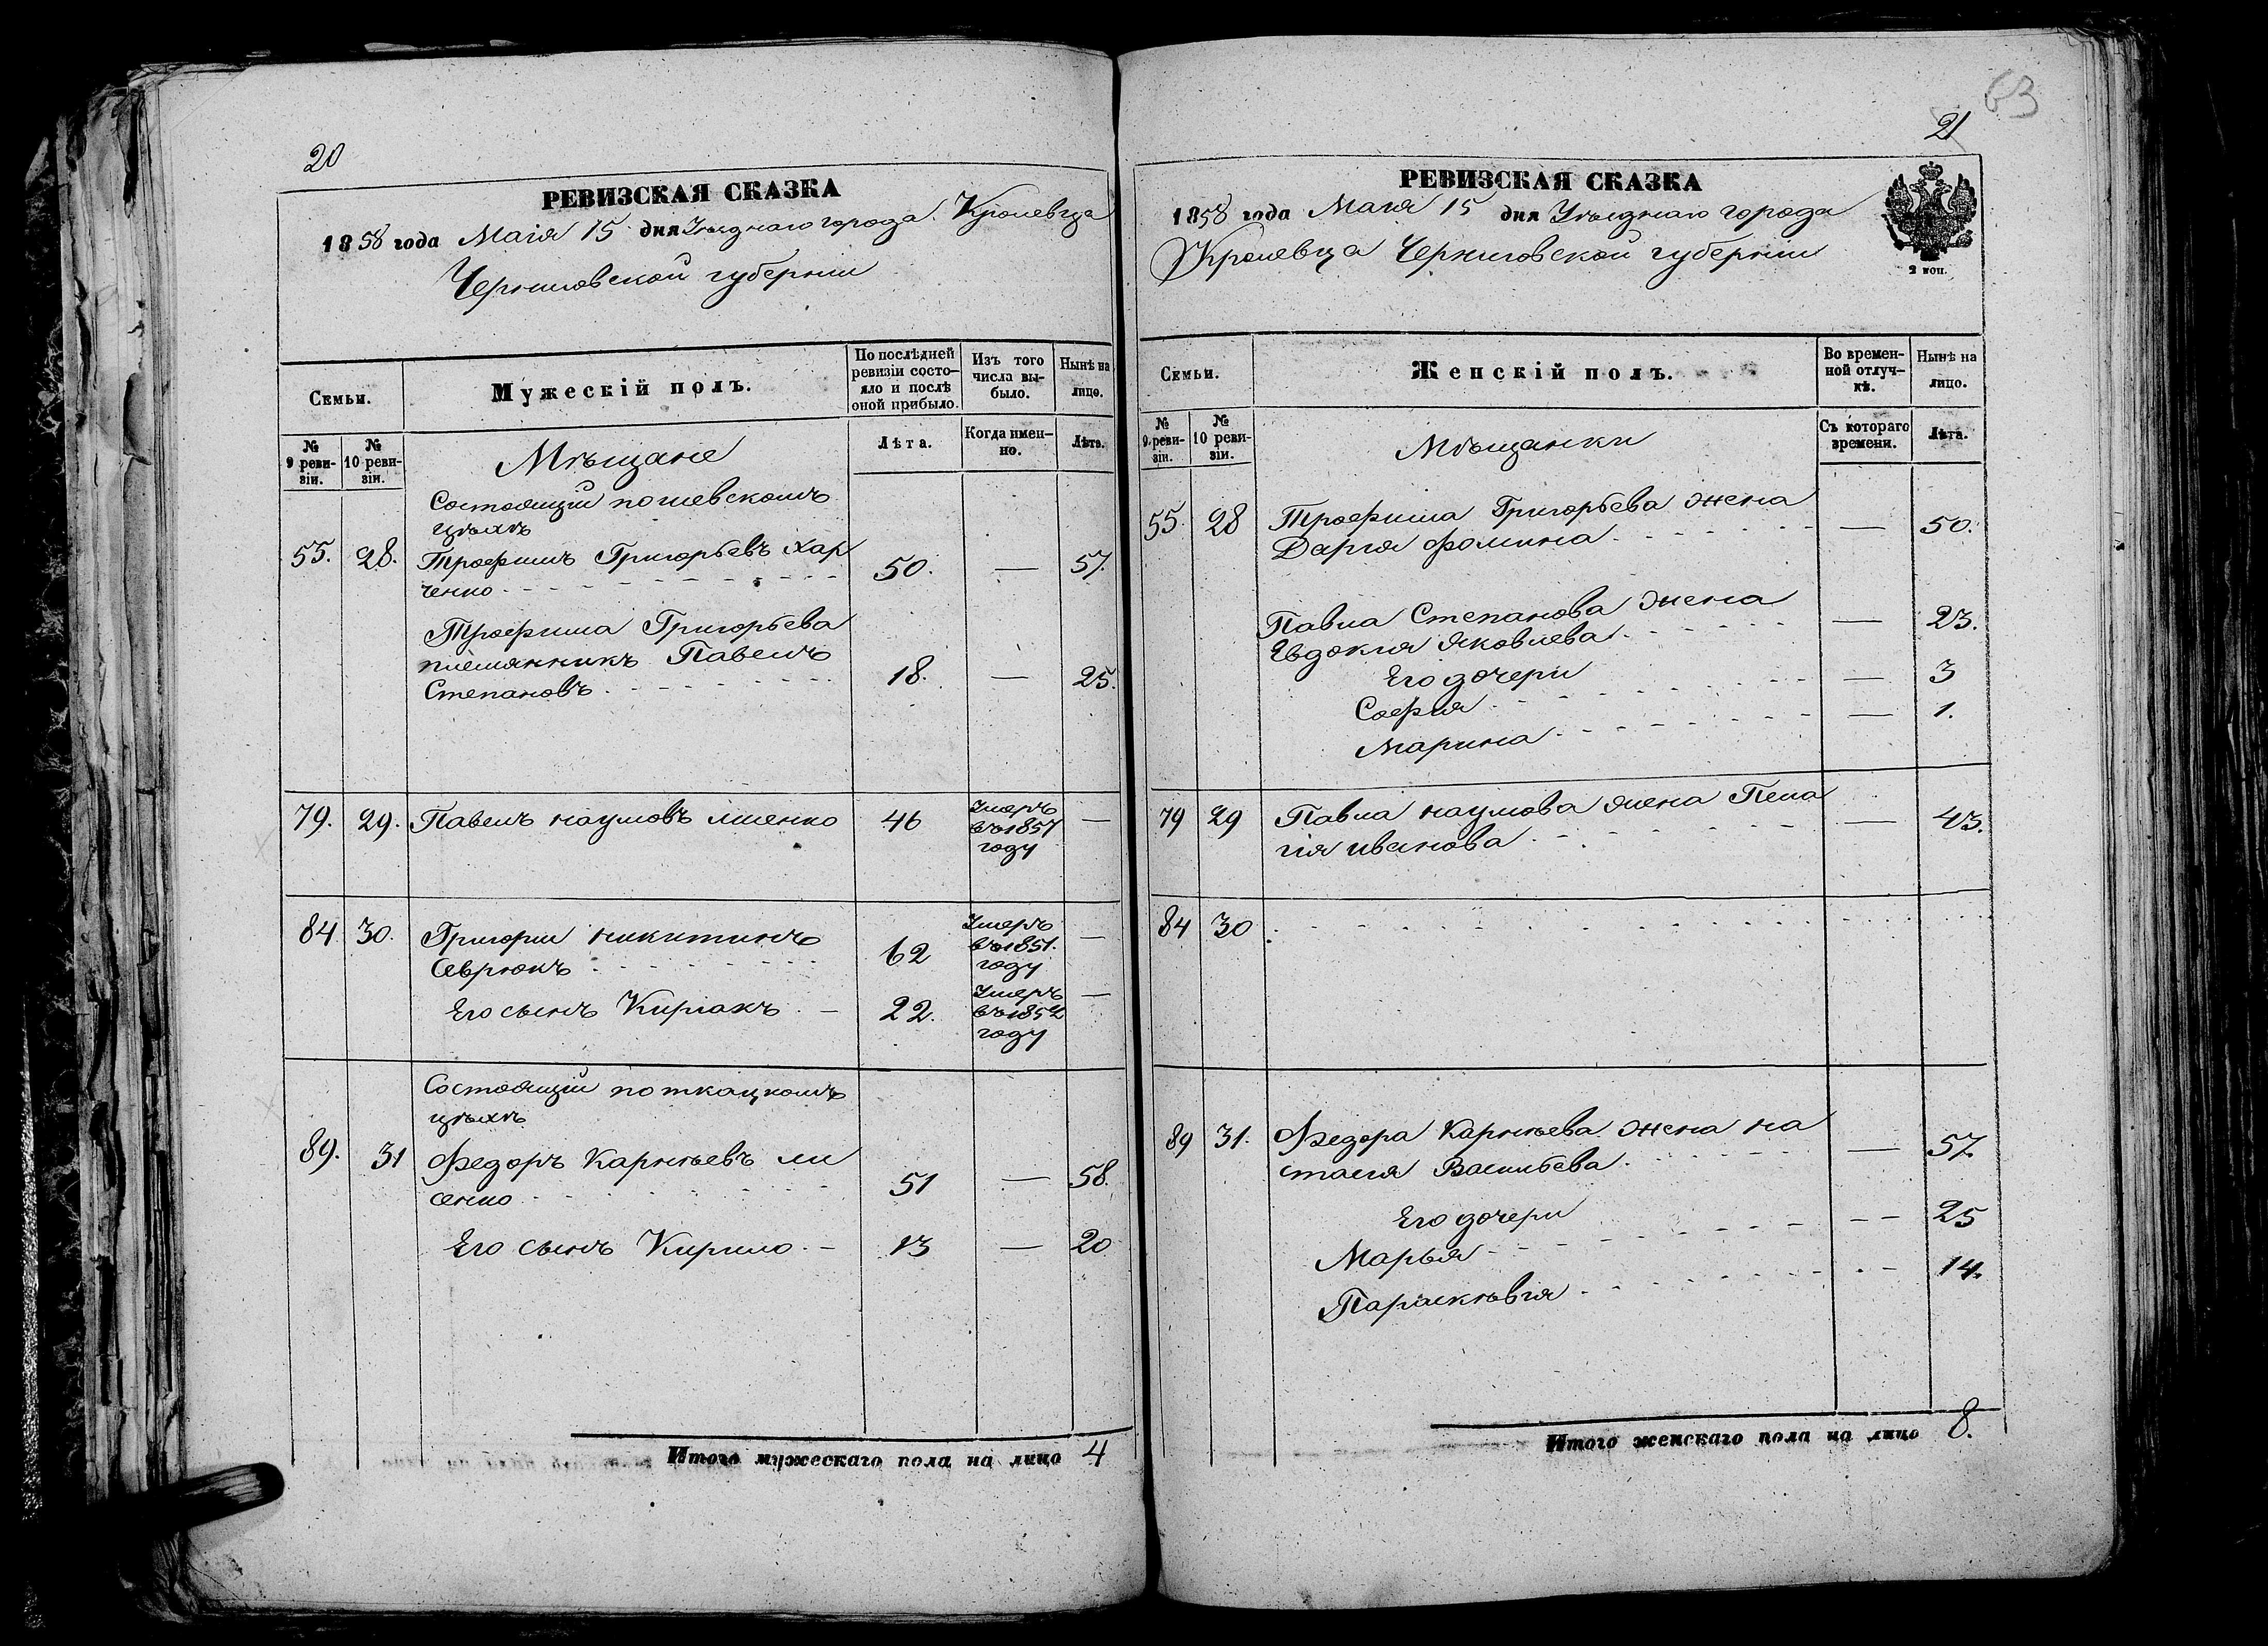 20
РЕВИЗСКАЯ СКАЗКА
1858 года Маія 15 дня Уѣзднаго города Кролевца
Черниговской губерніи
Семьи.
Мужескій полъ.
По послѣдней ревизіи состо-
яло и послѣ оной прибыло.
Изъ того числа вы-
было.
Нынѣ на лицо.
№ 9 реви-
зіи.
№ 10 реви-
зіи.
Мѣщане
Лѣта.
Когда имен-
но.
Лѣта.
Состоящіи по шевскомъ
цѣхѣ
55. 28. Трофимъ Григорьевъ Хар
ченко 50. — 57.
Трофима Григорьева
племянникъ Павелъ
Степановъ 18. — 25.
79. 29. Павелъ Наумовъ 46 Умеръ
въ 1857
году —
84 30. Григорій Никитинъ
Севрюкъ 62 Умеръ
въ 1851.
году —
Его сынъ Киріакъ — 22. Умеръ
въ 1852
году —
Состоящіи по ткацкомъ
цѣхѣ
89. 31 Федоръ Карнѣевъ Ли
сенко 51 — 58.
Его сынъ Кирило — 13 — 20
Итого мужескаго пола на лицо 4
63
21
РЕВИЗСКАЯ СКАЗКА
1858 года Маія 15 дня Уѣзднаго города
Кролевца Черниговской губерніи
2 коп.
Семьи.
Женскій полъ.
Во времен-
ной отлуч-
кѣ.
Нынѣ на
лицо.
№ 9 реви-
зіи.
№ 10 реви-
зіи.
Мѣщанки
Съ котораго
времени.
Лѣта.
55. 28 Трофима Григорьева жена
Дарія Фомина — 50.
Павла Степанова жена
Евдокія Яковлева — 23.
Его дочери
Софія — 3
Марина — 1.
79 29 Павла Наумова жена Пела
гія Иванова — 43.
84 30
89 31. Федора Карнѣева жена На
стасія Васильева — 57.
Его дочери
Марья — 25
Парасковія — 14.
Итого женскаго пола на лицо 8.